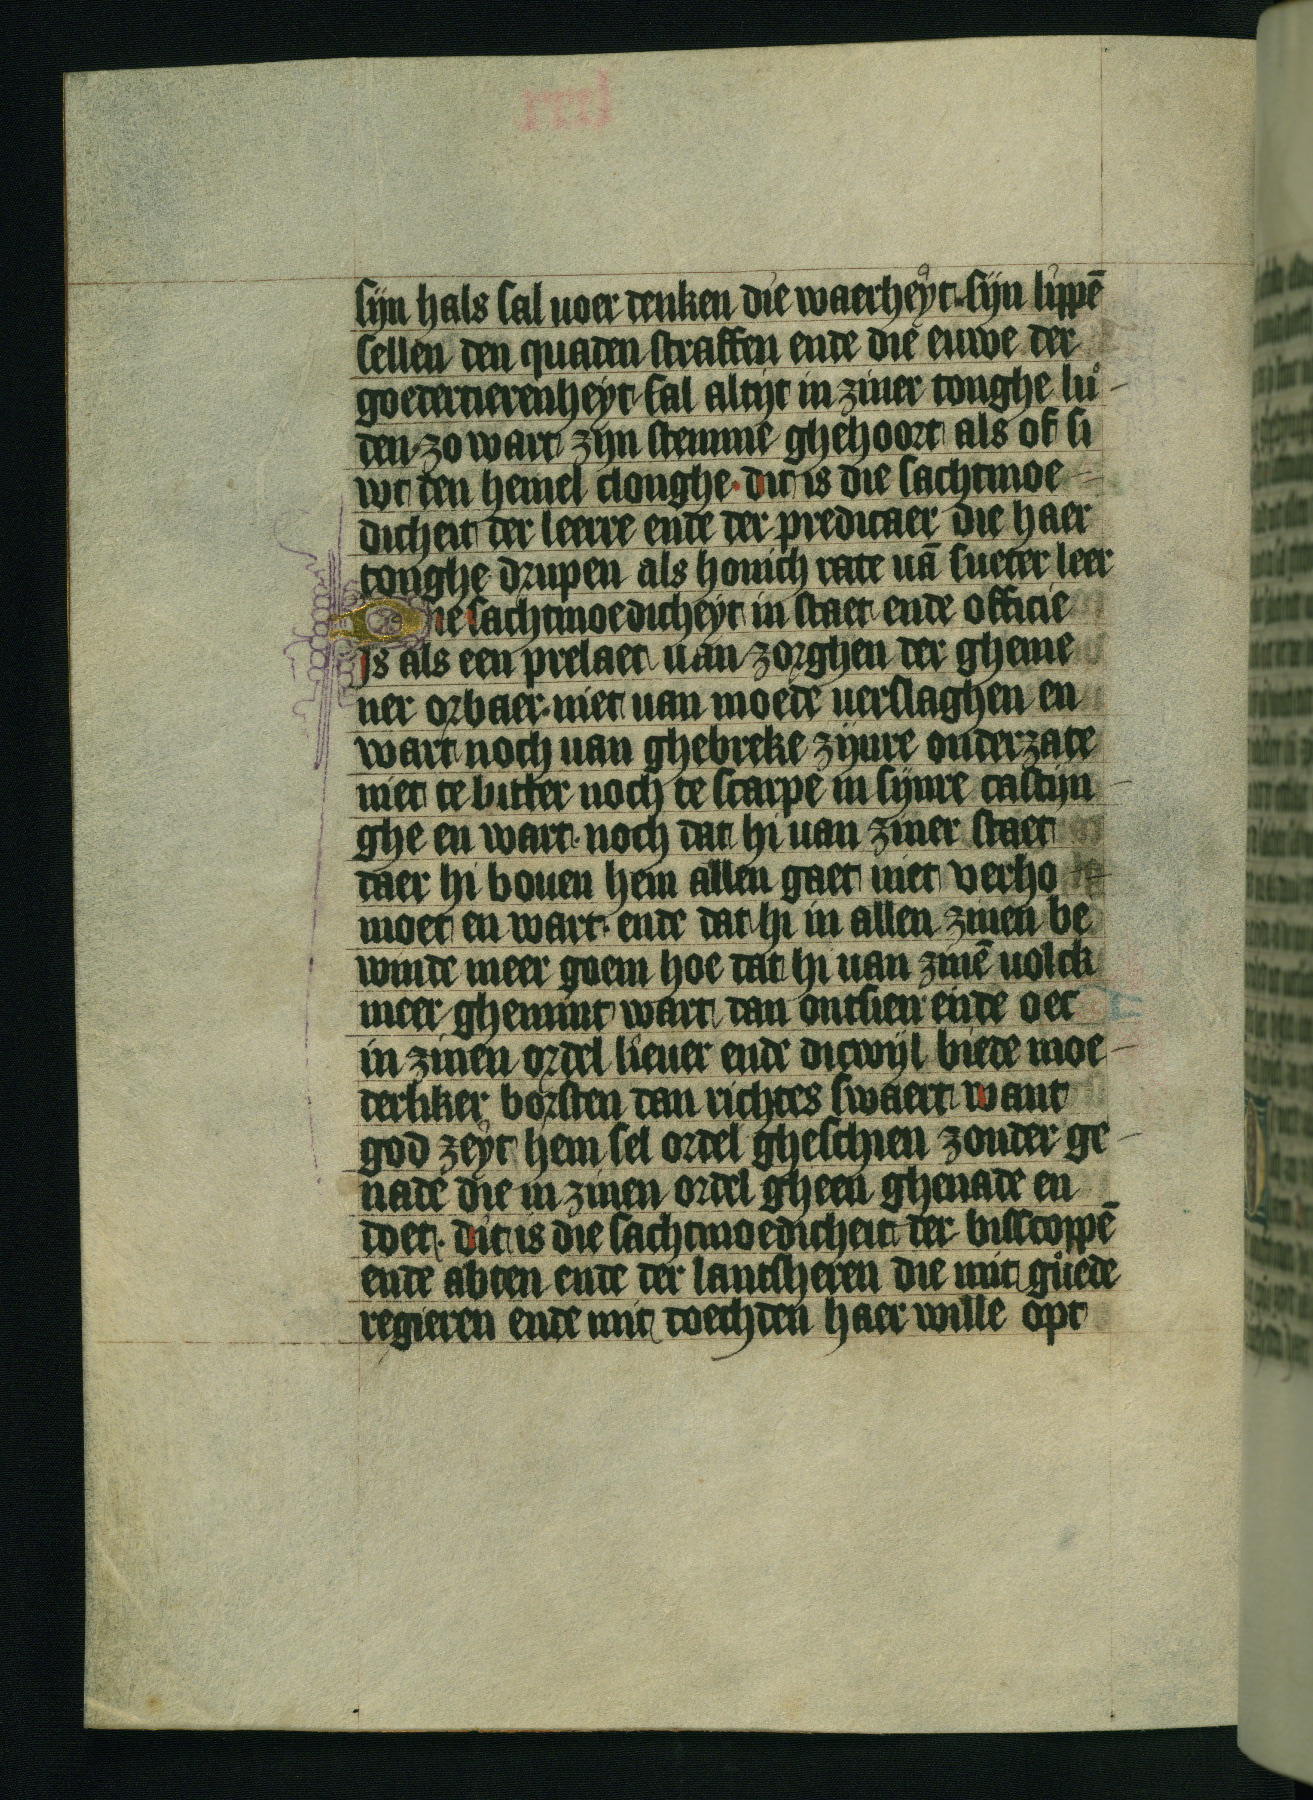 sijn hals sal uoer denken die waerheyt· sijn lippē
sellen den quaden straffen ende die euwe der
goedertierenheyt sal altijt in ziner tonghe lu
den· zo wart zijn stemme ghehoort als of si
wt den hemel clonghe· dit is die sachtmoe
dicheit der leerre ende der predicaer die haer
tonghe drupen als honich rate uā sueter leer
Die sachtmoedicheyt in staet ende officie
js als een prelaet uan zorghen der gheme
ner orbaer· niet uan moede uerslaghen en
wart noch uan ghebreke zijnre onderzate
niet te bitter noch te scarpe in sijnre castijn
ghe en wart· noch dat hi uan ziner staet
daer hi bouen hem allen gaet niet verho
moet en wart· ende dat hi in allen zinen be
winde meer goem hoe dat hi uan zinē uolck
meer ghemint wart dan ontsien ende oec
in zinen ordel lieuer ende dicwijl biede moe
derliker borsten dan richtes swaert want
god zeyt hem sel ordel gheschien zonder ge
nade die in zinen ordel gheen ghenade en
doet· dit is die sachtmoedicheit der bisscoppē
ende abten ende der lantsheren die mit guede
regieren ende mit doechden haer wille opt